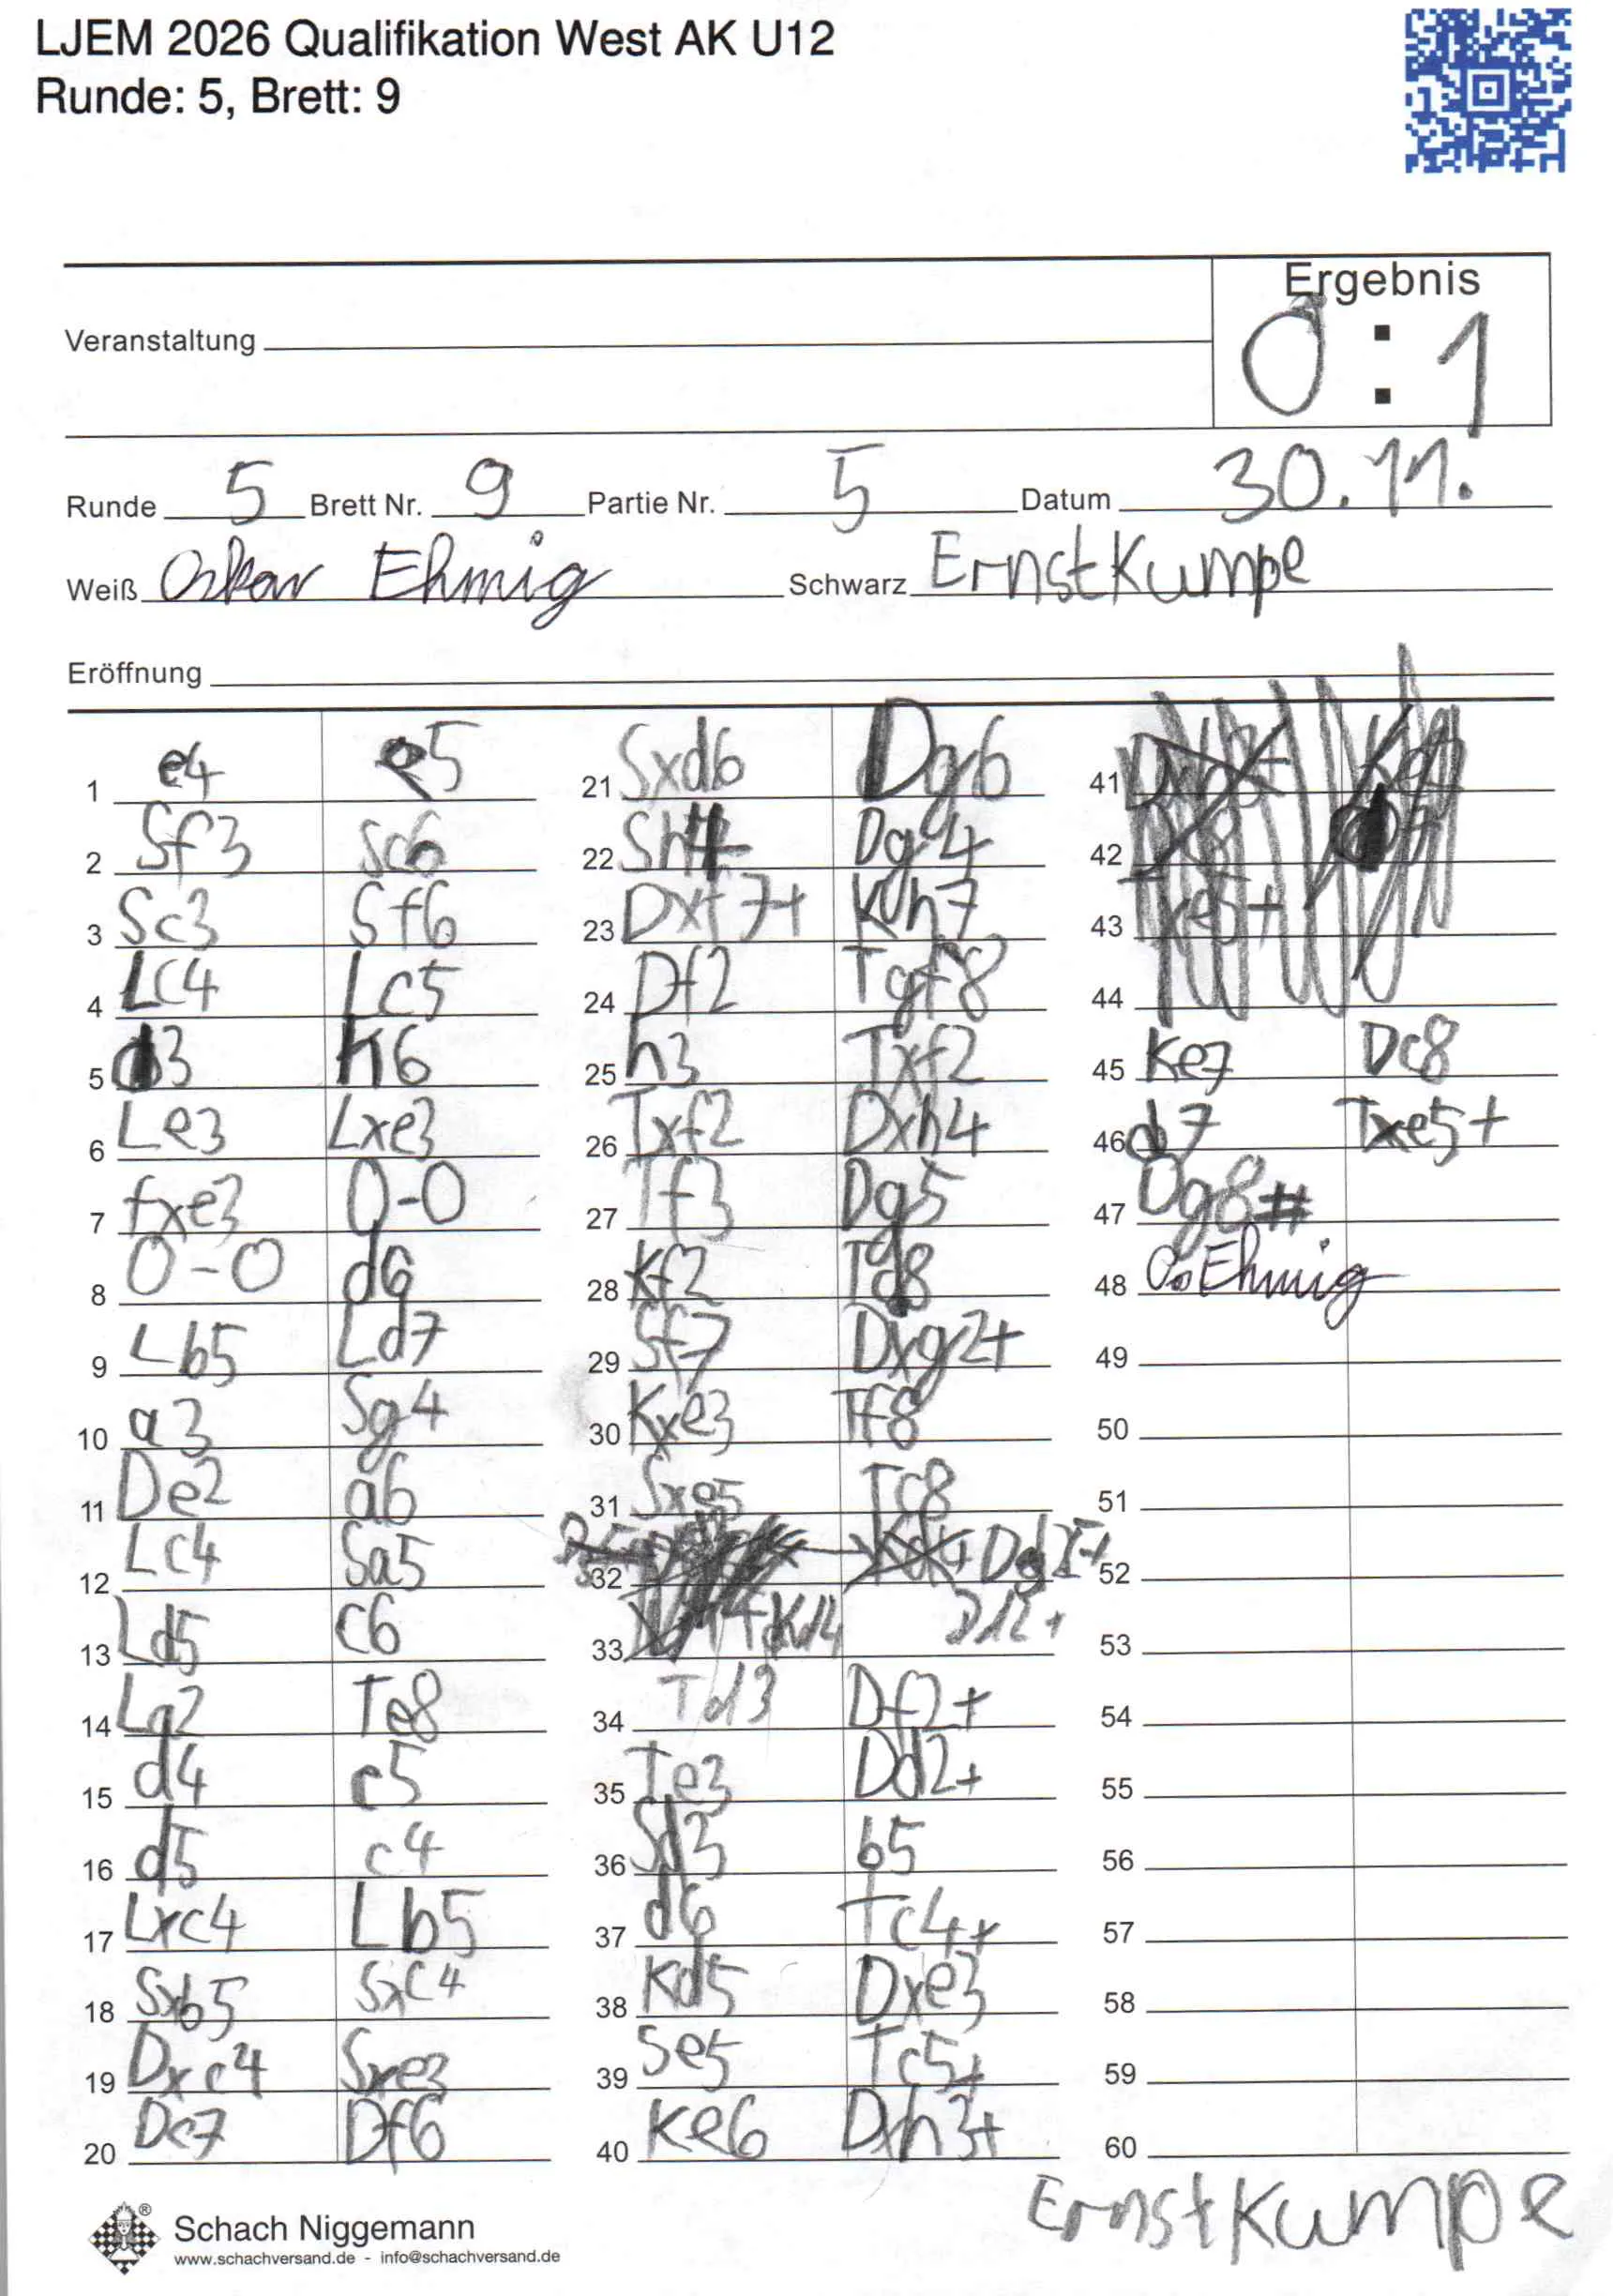 LJEM 2026 Qualifikation West AK U12
Runde: 5, Brett: 9
Ergebnis
Veranstaltung
0 : 1
Runde 5 Brett Nr. 9 Partie Nr. 5 Datum 30.11.
Weiß Oskar Ehmig Schwarz Ernst Kumpe
Eröffnung
1 e4 e5
2 Sf3 Sc6
3 Sc3 Sf6
4 Lc4 Lc5
5 d3 h6
6 Le3 Lxe3
7 fxe3 0-0
8 0-0 d6
9 Lb5 Ld7
10 a3 Sg4
11 De2 a6
12 Lc4 Sa5
13 Ld5 c6
14 La2 Te8
15 d4 c5
16 d5 c4
17 Lxc4 Lb5
18 Sxb5 Sxc4
19 Dxc4 Sxe3
20 Dc7 Df6
21 Sxd6 Dg6
22 Sh4 Dg4
23 Dxf7+ Kh7
24 Df2 Tgf8
25 h3 Txf2
26 Txf2 Dxh4
27 Tf3 Dg5
28 Kf2 Td8
29 Sf7 Dxg2+
30 Kxe3 Tf8
31 Sxe5 Tc8
32
33 Kd4
34 Td3 Df2+
35 Te3 Dd2+
36 Sd3 b5
37 d6 Tc4+
38 Kd5 Dxe3
39 Se5 Tc5+
40 Ke6 Dxh3+
41
42
43 Txe5+
44
45 Ke7 Dc8
46 d7 Txe5+
47 Dg8#
48 O. Ehmig
49
50
51
52
53
54
55
56
57
58
59
60
Ernst Kumpe
Schach Niggemann
www.schachversand.de - info@schachversand.de